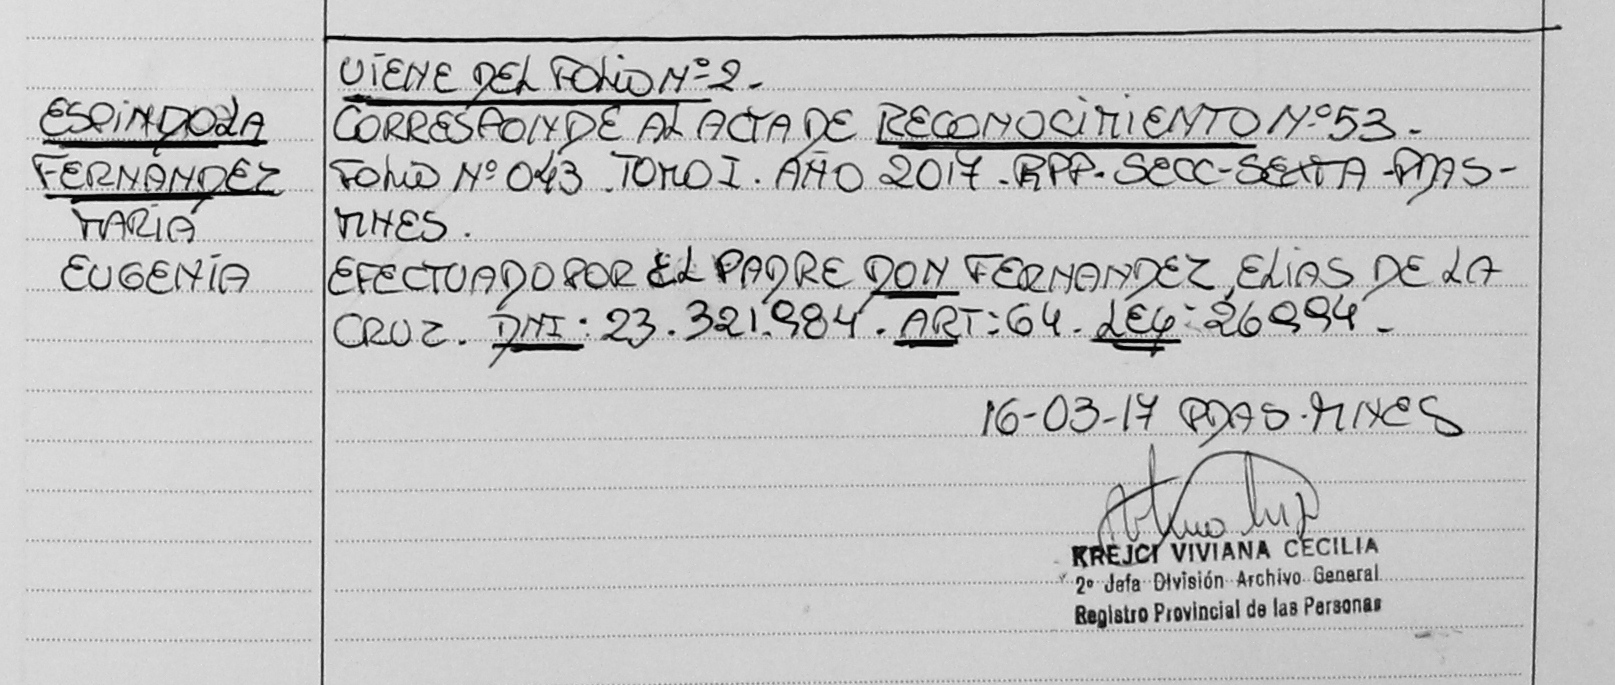 ESPINDOLA
FERNANDEZ
MARIA
EUGENIA
VIENE DEL FOLIO Nº 2-
CORRESPONDE AL ACTA DE RECONOCIMIENTO Nº 53-
FOLIO Nº 043. TOMO I. AÑO 2017- RPP- SECC-SEXTA-PDAS-
MNES.
EFECTUADO POR EL PADRE DON FERNANDEZ, ELIAS DE LA
CRUZ. DNI: 23.321.984. ART: 64. LEY: 26994-
16-03-17 PDAS-MNES
KREJCI VIVIANA CECILIA
2º Jefa División Archivo General
Registro Provincial de las Personas